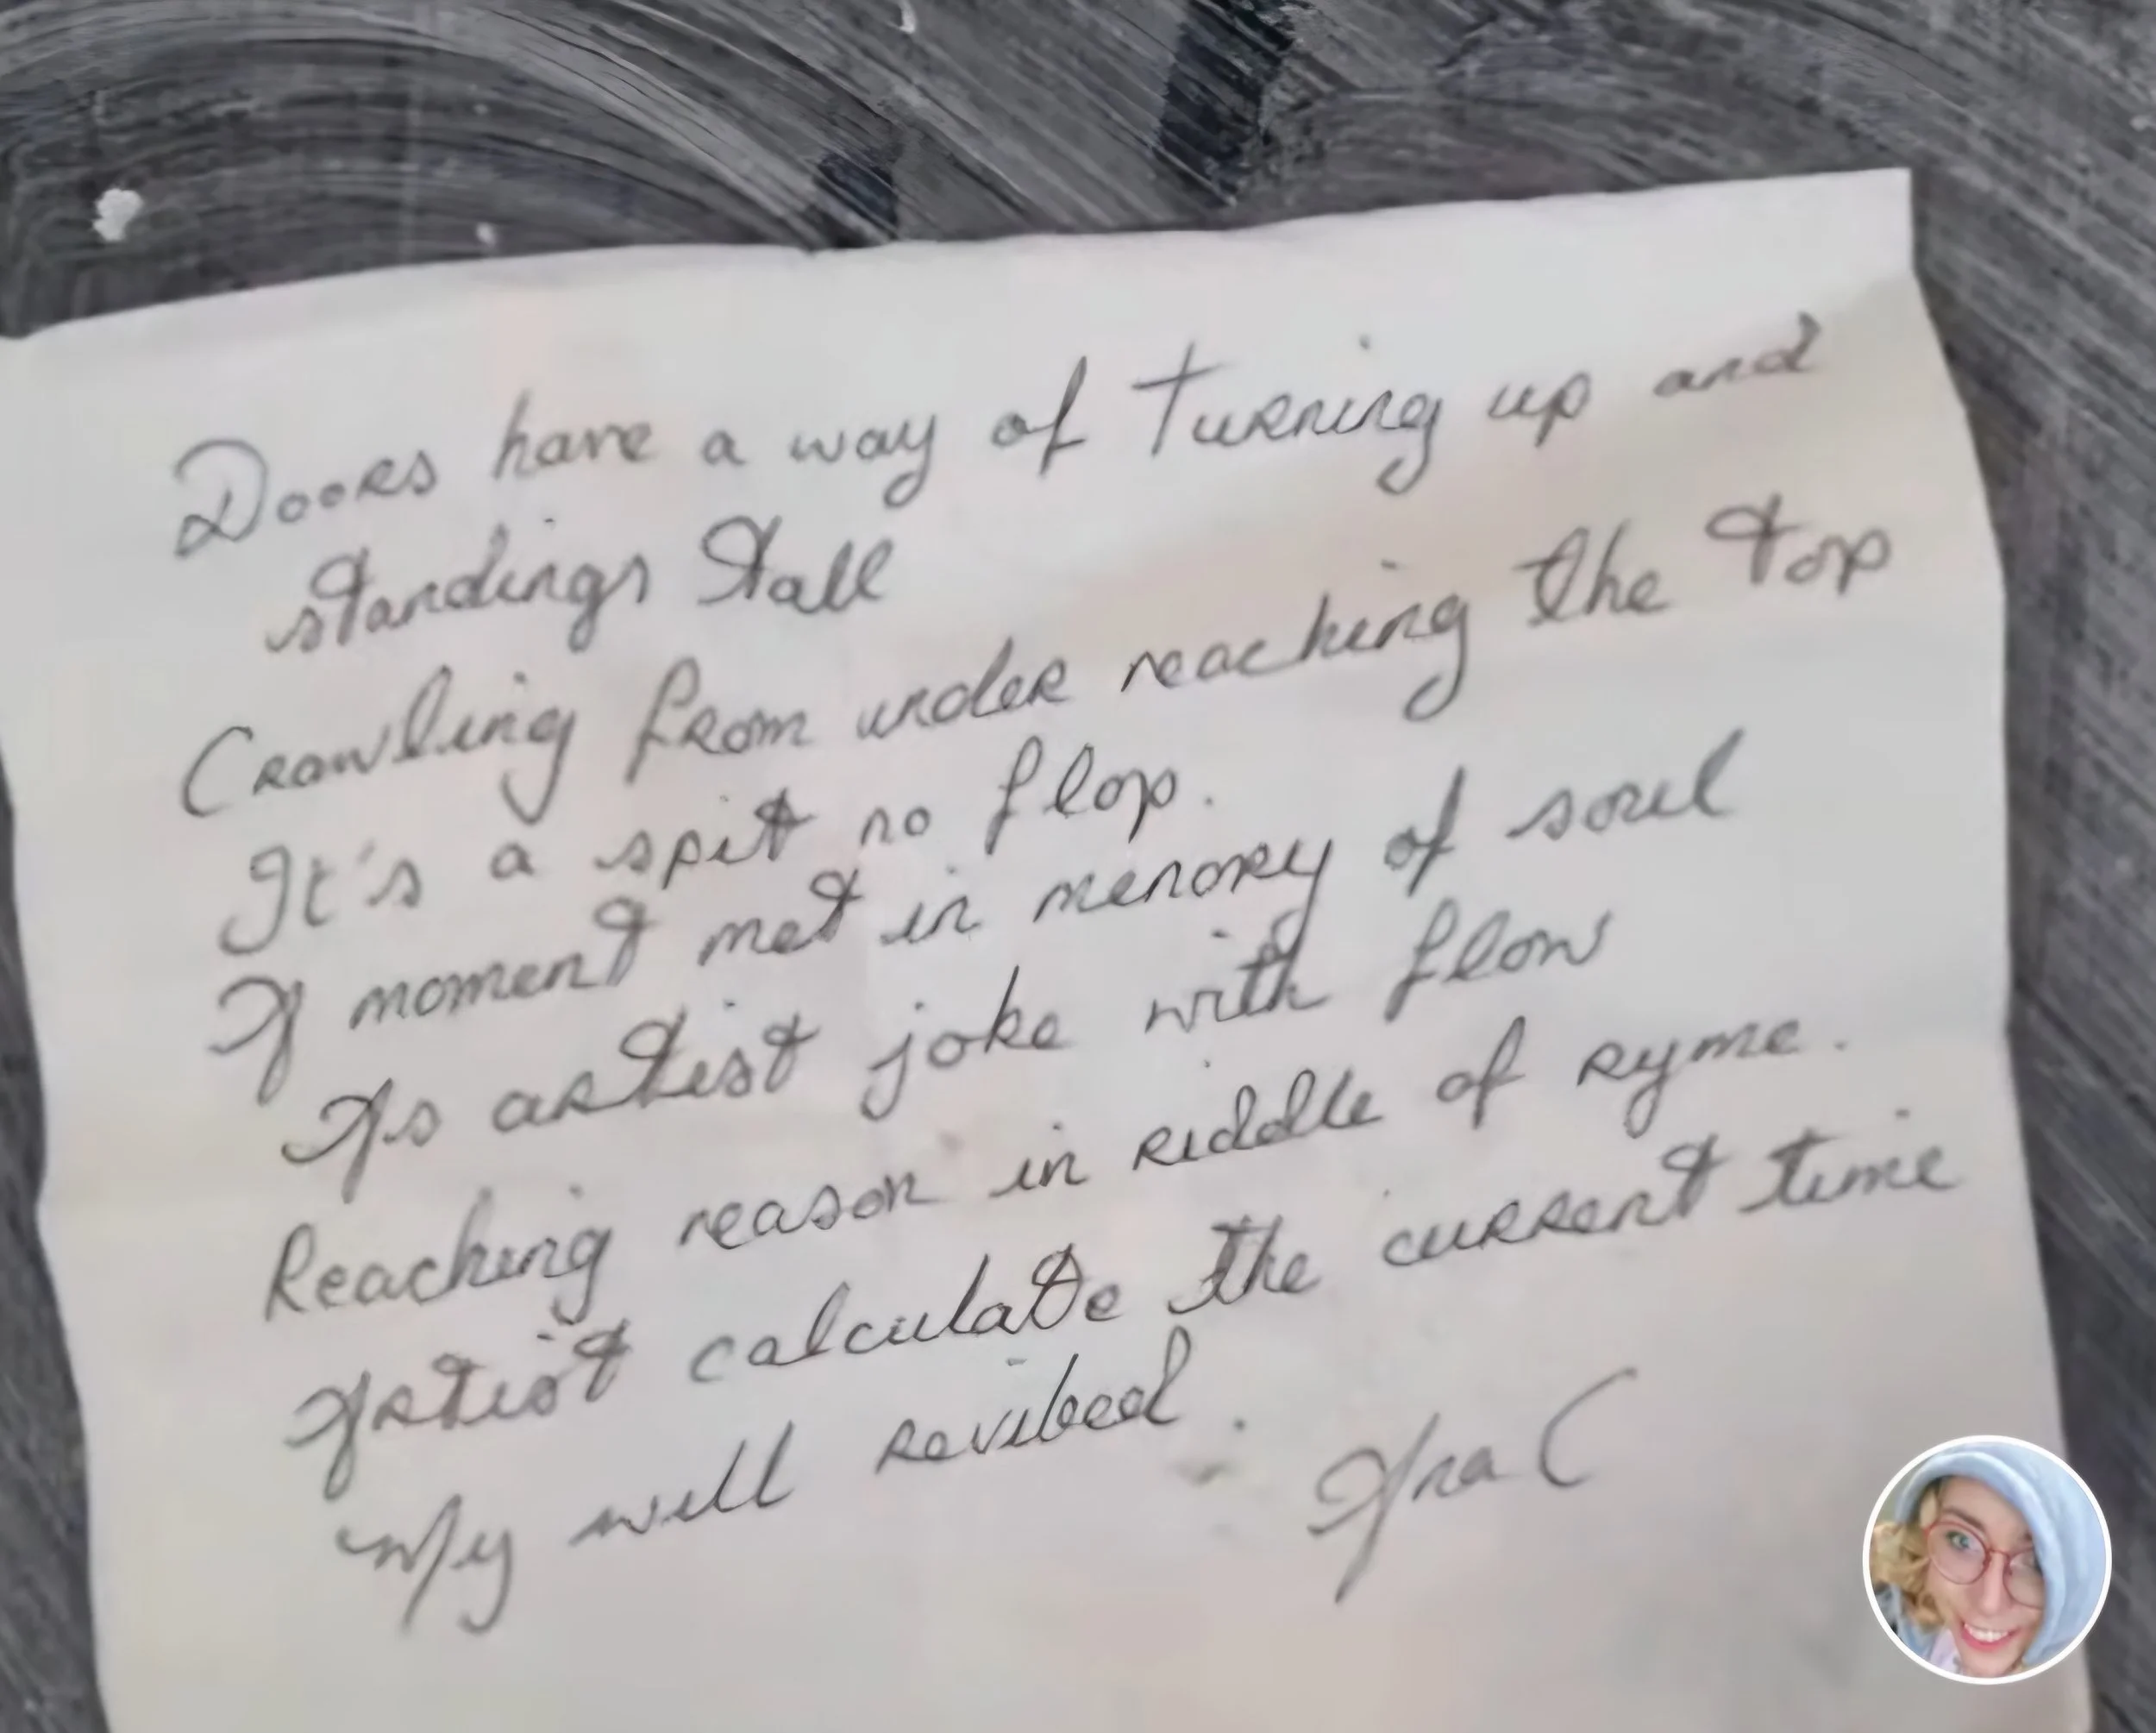 Doors have a way of Turning up and
standings tall
Crawling from under reaching the top
It's a spit no flop.
A moment met in menory of soul
As artist joke with flow
Reaching reason in riddle of ryme.
Artist calculate the current time
My will
Ana C